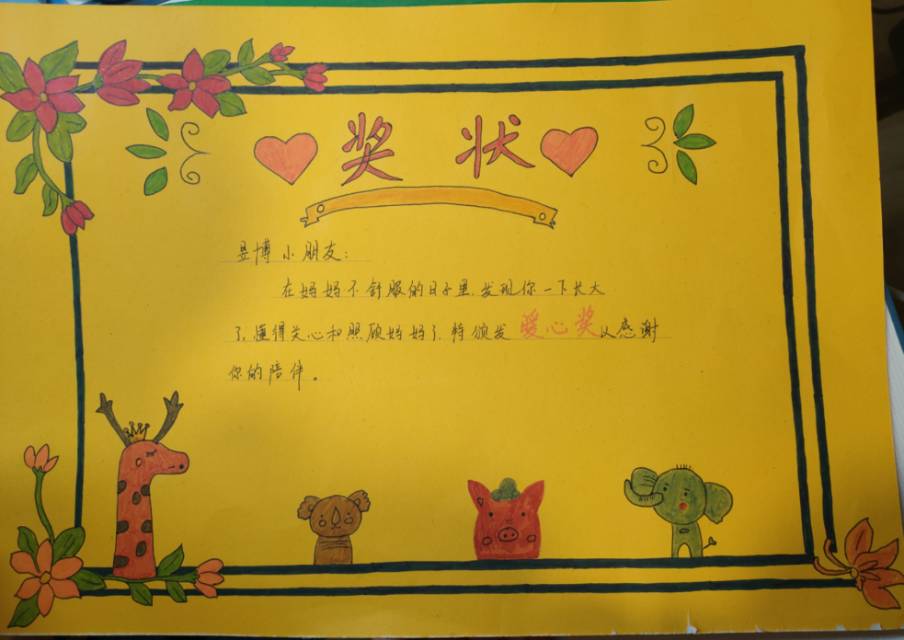 奖 状
昱博小朋友：
在妈妈不舒服的日子里，发现你一下长大
了，懂得关心和照顾妈妈了，特颁发暖心奖以感谢
你的陪伴。